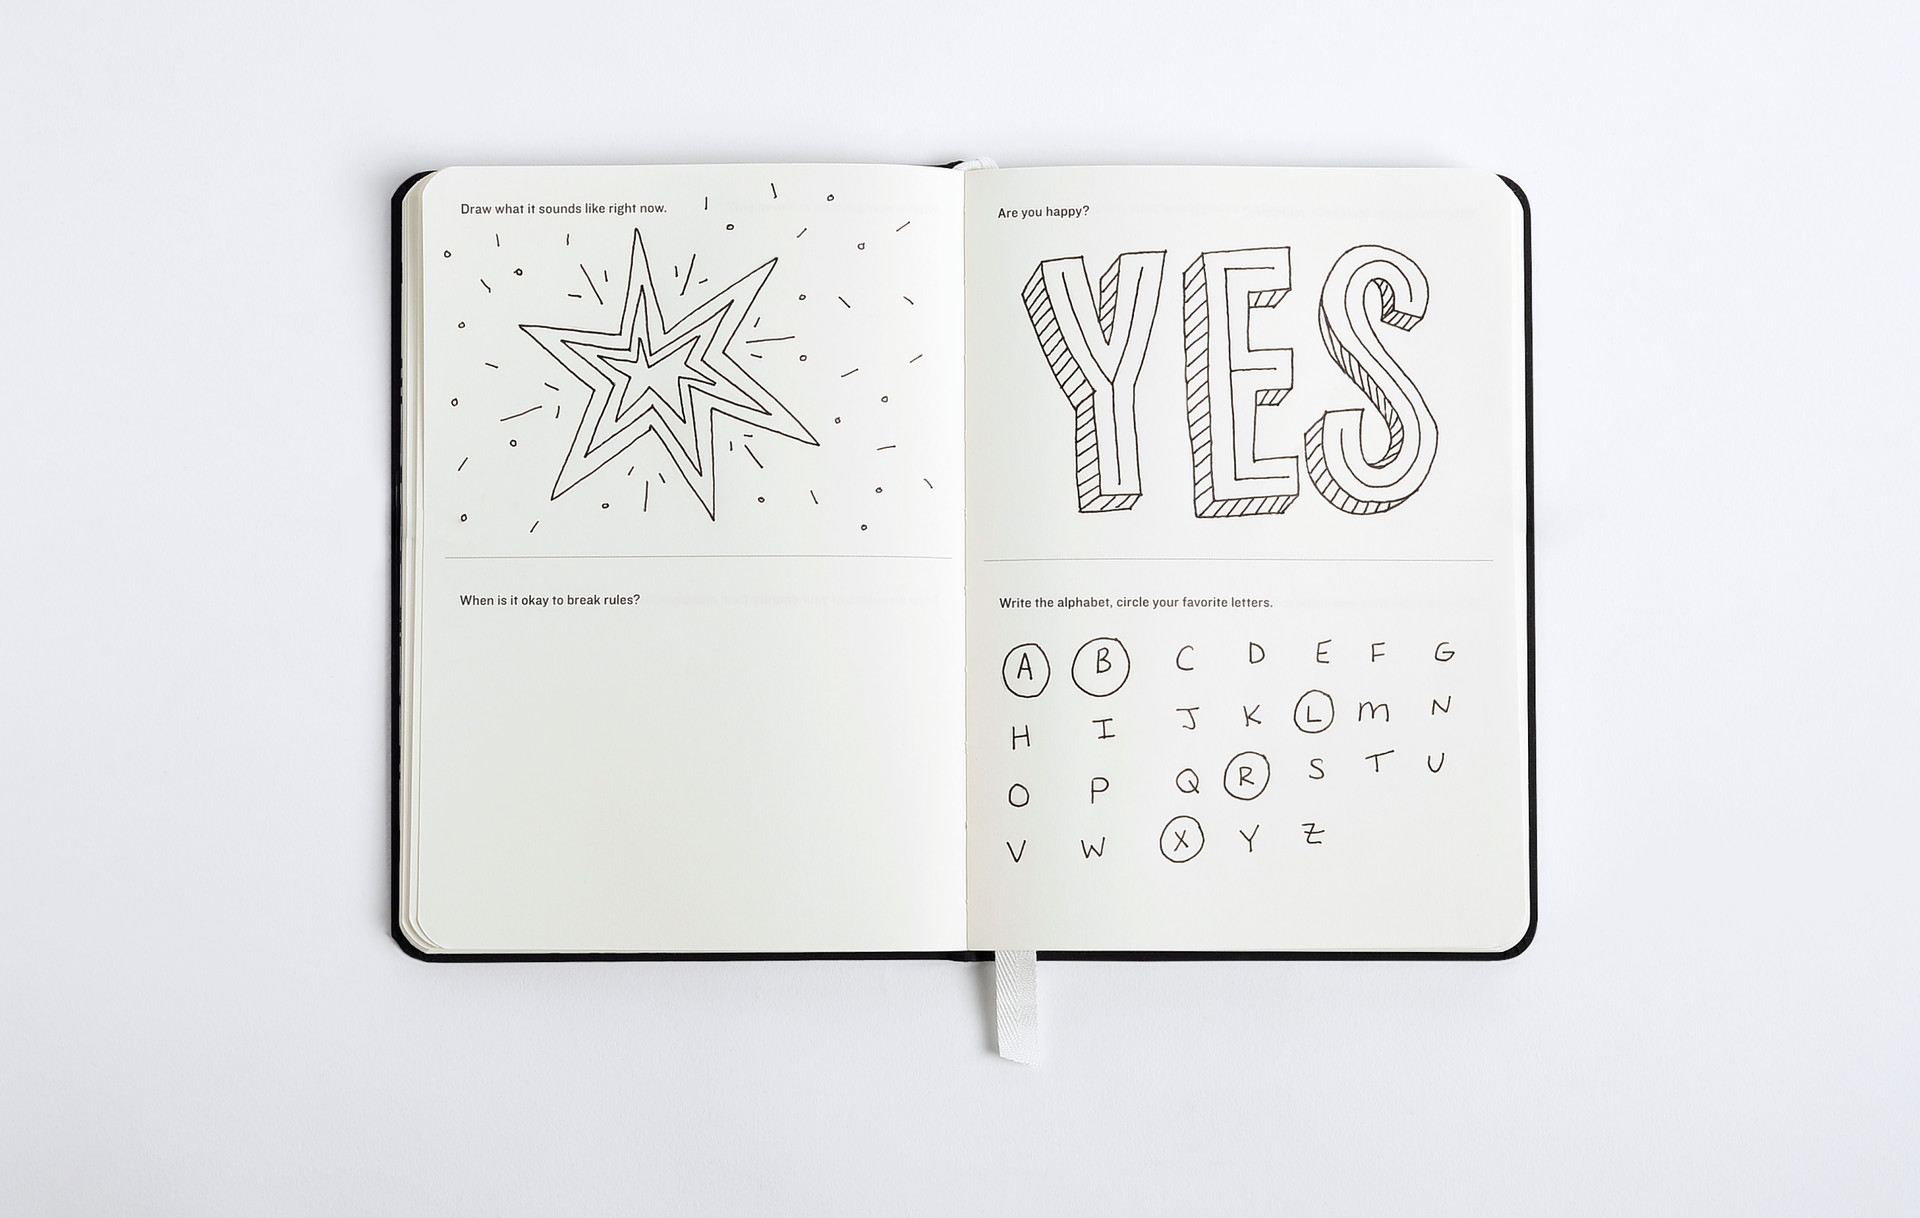 Draw what it sounds like right now.
When is it okay to break rules?
Are you happy?
YES
Write the alphabet, circle your favorite letters.
A B C D E F G
H I J K L m N
O P Q R S T U
V W X Y Z